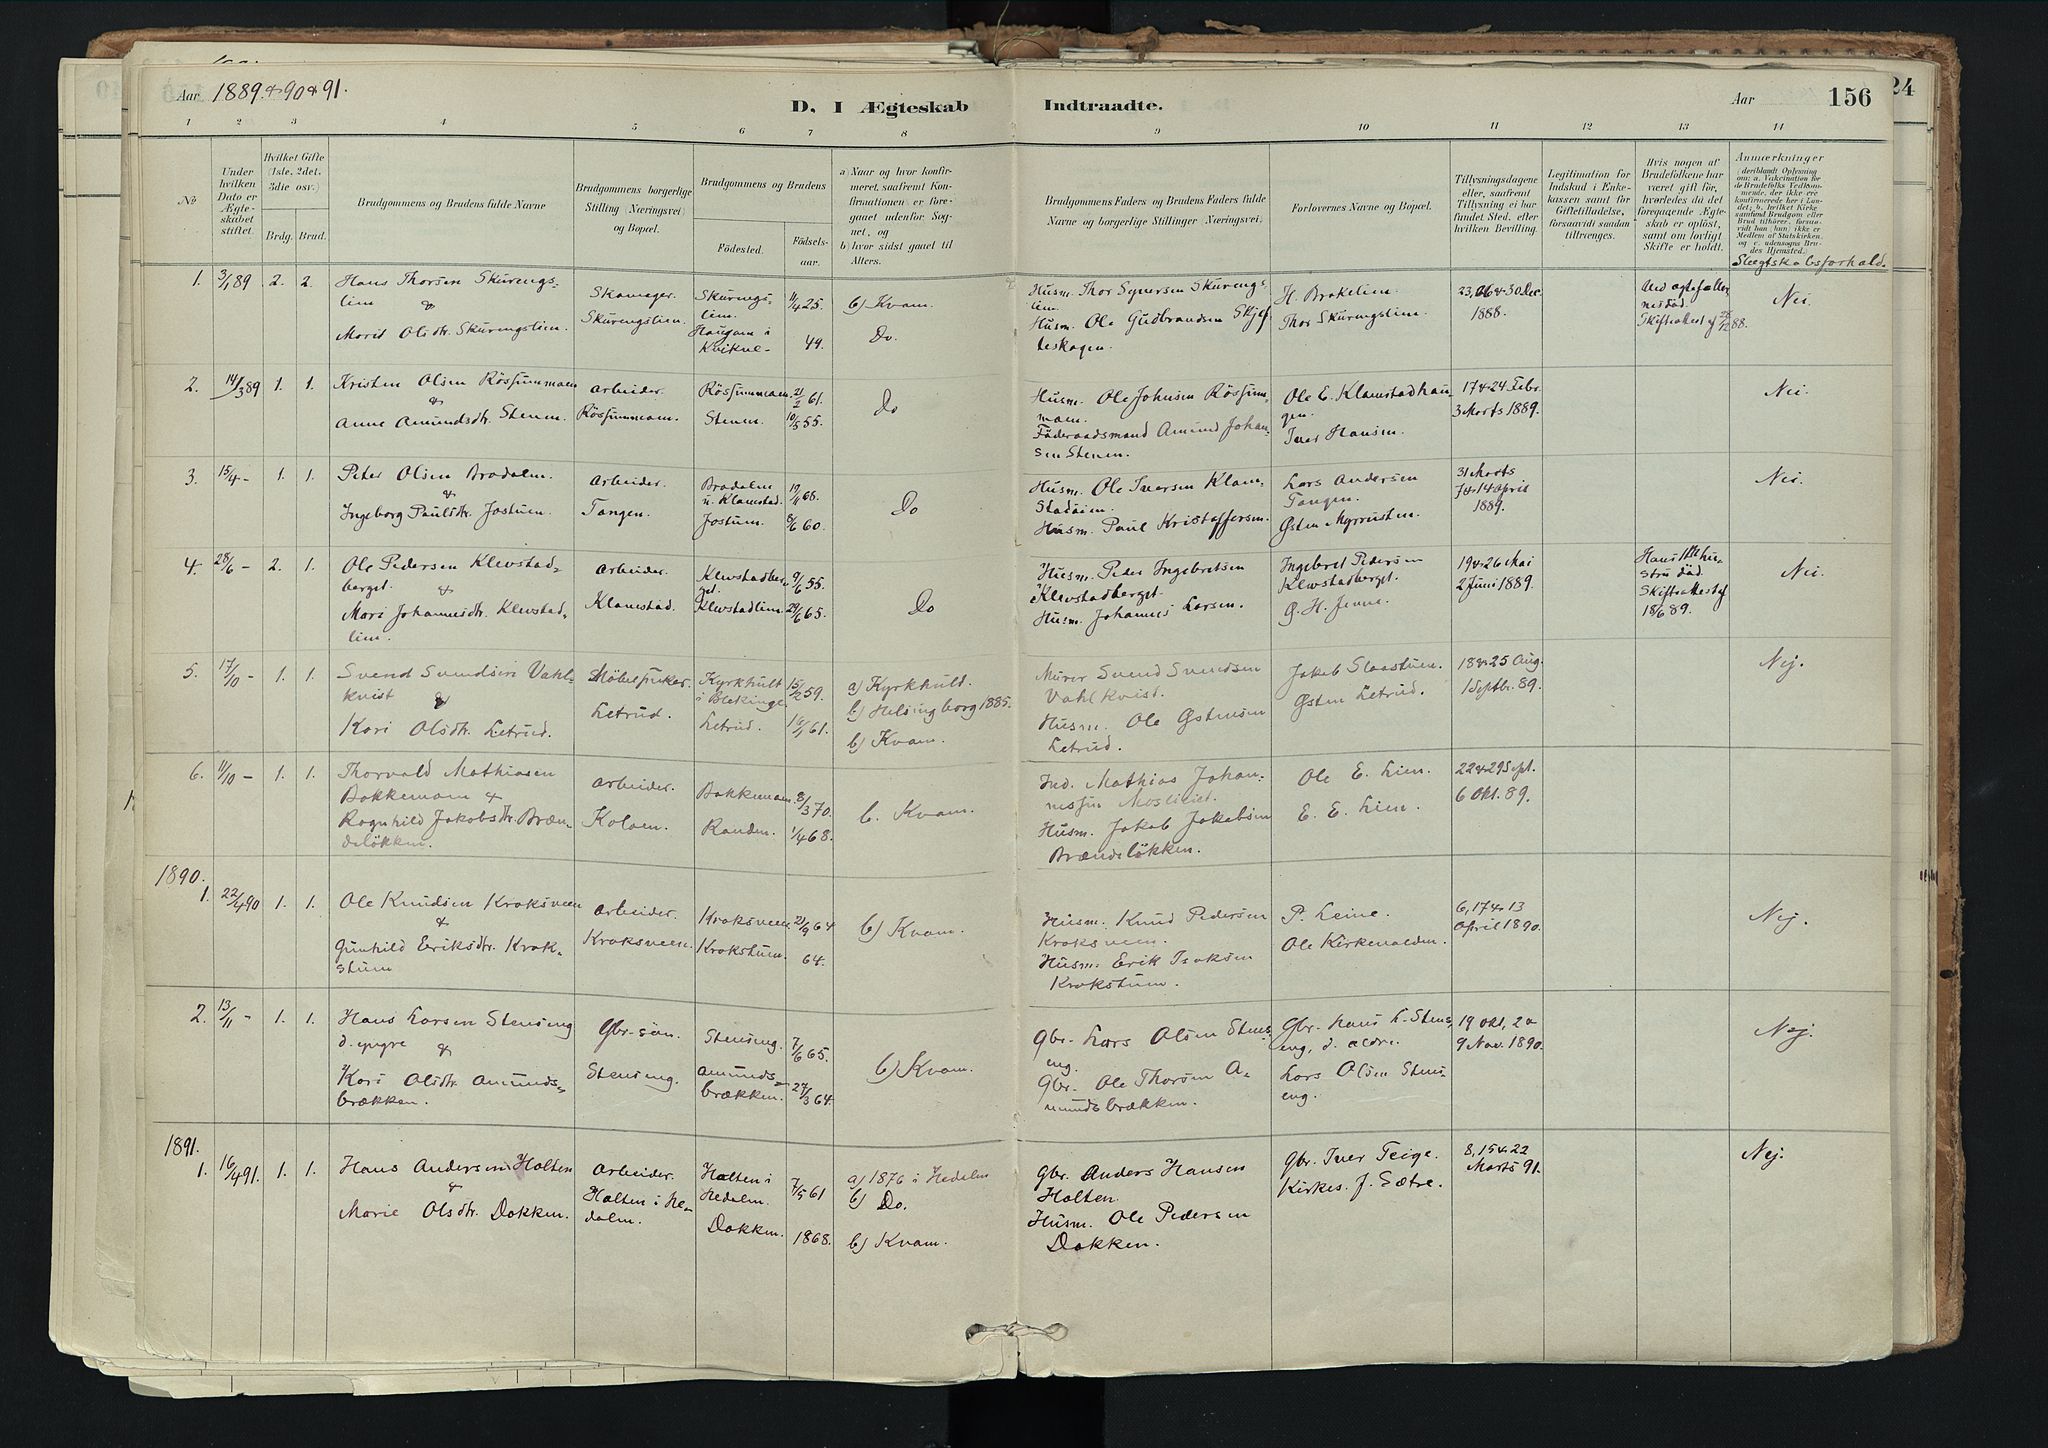 Aar 1889 & 90 & 91.
D. I Ægteskab Indtraadte.
Aar 156
24
1 2 3 4 5 6 7 8 9 10 11 12 13 14
No
Under hvilken Dato er Ægteskabet stiftet.
Hvilket Gifte (1ste, 2det, 3die osv.)
Brdg. Brud.
Brudgommens og Brudens fulde Navne
Brudgommens borgerlige Stilling (Næringsvei) og Bopæl.
Brudgommens og Brudens
Fødested. Fødselsaar.
a) Naar og hvor konfirmeret, saafremt Konfirmationen er foregaaet udenfor Sognet, og
b) hvor sidst gaaet til Alters.
Brudgommens Faders og Brudens Faders fulde Navne og borgerlige Stillinger (Næringsvei)
Forlovernes Navne og Bopæl.
Tillysningsdagene eller, saafremt Tillysning ei har fundet Sted, efter hvilken Bevilling.
Legitimation for Indskud i Enkekassen samt for Giftetilladelse, forsaavidt saadan tiltrænges.
Hvis nogen af Brudefolkene har været gift før, hvorledes da det foregaaende Ægteskab er opløst, samt om lovligt Skifte er holdt.
Anmærkninger
Slegtskabsforhold.
1. 3/1 89 2. 2. Hans Thorsen Skurengslien & Marit Olsdtr. Skurengslien.
Skomager. Skurengslien.
Skurengslien. 11/4 25.
Haugen i Kvikne 44.
b) Kvam.
Do.
Husm. Thor Syversen Skurengslien.
Husm. Ole Gudbrandsen
H. Brakelien.
Thor Skurengslien.
& 30 Dec. 1888.
Skifteattest af 88.
Nei.
2. 14/3 89 1. 1. Kristen Olsen Rössummoen & Anne Amundsdtr. Stenen.
Arbeider. Rössummoen.
Rössummoen. 21/2 61.
Stenen. 10/5 55.
Do
Husm. Ole Johnsen Rössummoen.
Föderaadsmand Amund Johansen Stenen.
Ole E. Klamstadhaugen.
Iver Hansen.
17 & 24 Febr. 3 Marts 1889.
Nei.
3. 15/4 - 1. 1. Peter Olsen Brodalen. & Ingeborg Paulsdtr. Jostuen.
Arbeider. Tangen.
Brodalen u. Klamstad. 68.
Jostuen. 8/6 60.
Do
Husm. Ole Iversen Klamstadeien.
Husm. Paul Kristoffersen.
Lars Andersen Tangen.
Østen Myrrusten.
31 Marts 7 & 14 April 1889.
Nei.
4. 28/6 - 2. 1. Ole Pedersen Klevstadberget. & Mari Johannesdtr. Klevstadlien.
Arbeider. Klamstad.
Klevstadberget. 9/6 55.
Klevstadlien. 24/6 65.
Do
Husm. Peder Ingebretsen Klevstadberget.
Husm. Johannes Larsen.
Ingebret Pedersen Klevstadberget.
19 & 26 Mai 2 Juni 1889.
Hans 1ste hustru död. Skifteattest af 18/6 89.
Nei.
5. 17/10 - 1. 1. Svend Svendsen Vahlkvist & Kari Olsdtr. Letrud.
Möbelsnekker. Letrud.
Kyrkhult i Blekinge. 15/2 59.
Letrud. 61.
a) Kyrkhuld.
b) Helsingborg 1885.
b) Kvam.
Murer Svend Svendsen Vahlkvist.
Husm. Ole Østensen Letrud.
Jakob Slaastuen.
Østen Letrud.
18 & 25 Aug. 1 Septbr. 89.
Nej.
6. 11/10 - 1. 1. Thorvald Mathiasen Bakkemoen & Ragnhild Jakobsdtr. Brændeløkken.
Arbeider. Koloen.
Bakkemoen. 8/3 70.
Randen. 1/4 68.
b. Kvam.
Ind. Mathias Johannessen Mosliet.
Husm. Jakob Jakobsen Brændeløkken.
Ole E. Lien.
E. E. Lien.
22 & 29 Sept. 6 Okt. 89.
1890.
1. 22/4 90 1. 1. Ole Knudsen Kroksveen & Gunhild Eriksdtr. Krokstuen
Arbeider. Kroksveen.
Kroksveen. 21/9 64
Krokstuen. 64.
b) Kvam.
Husm. Knud Pedersen Kroksveen.
Husm. Erik Isaksen Krokstuen.
P. Leine.
Ole Kirkevolden.
6, 17 & 13 April 1890.
Nej.
2. 13/11 - 1. 1. Hans Larsen Steneng d. yngre & Kari Olsdtr. Amundsbrækken.
Gbr. sön. Steneng.
Steneng. 7/6 65.
Amundsbrækken. 27/3 64.
b) Kvam.
Gbr. Lars Olsen Steneng.
Gbr. Ole Thorsen Amundsbrækken.
Gbr. Hans L. Steneng, d. ældre.
Lars Olsen Steneng.
19 Okt, 2 & 9 Nov. 1890.
Nej.
1891.
1. 16/4 91. 1. 1. Hans Andersen Holten & Marie Olsdtr. Dokken.
Arbeider. Holten i Hedalen.
Holten i Hedalen. 7/5 61
Dokken. 1868.
a) 1876 i Hedalen
b) Do.
b) Kvam.
Gbr. Anders Hansen Holten.
Husm. Ole Pedersen Dokken.
Gbr. Iver Teige.
Kirkes. J. Sætre.
8, 15 & 22 Marts 91.
Nej.